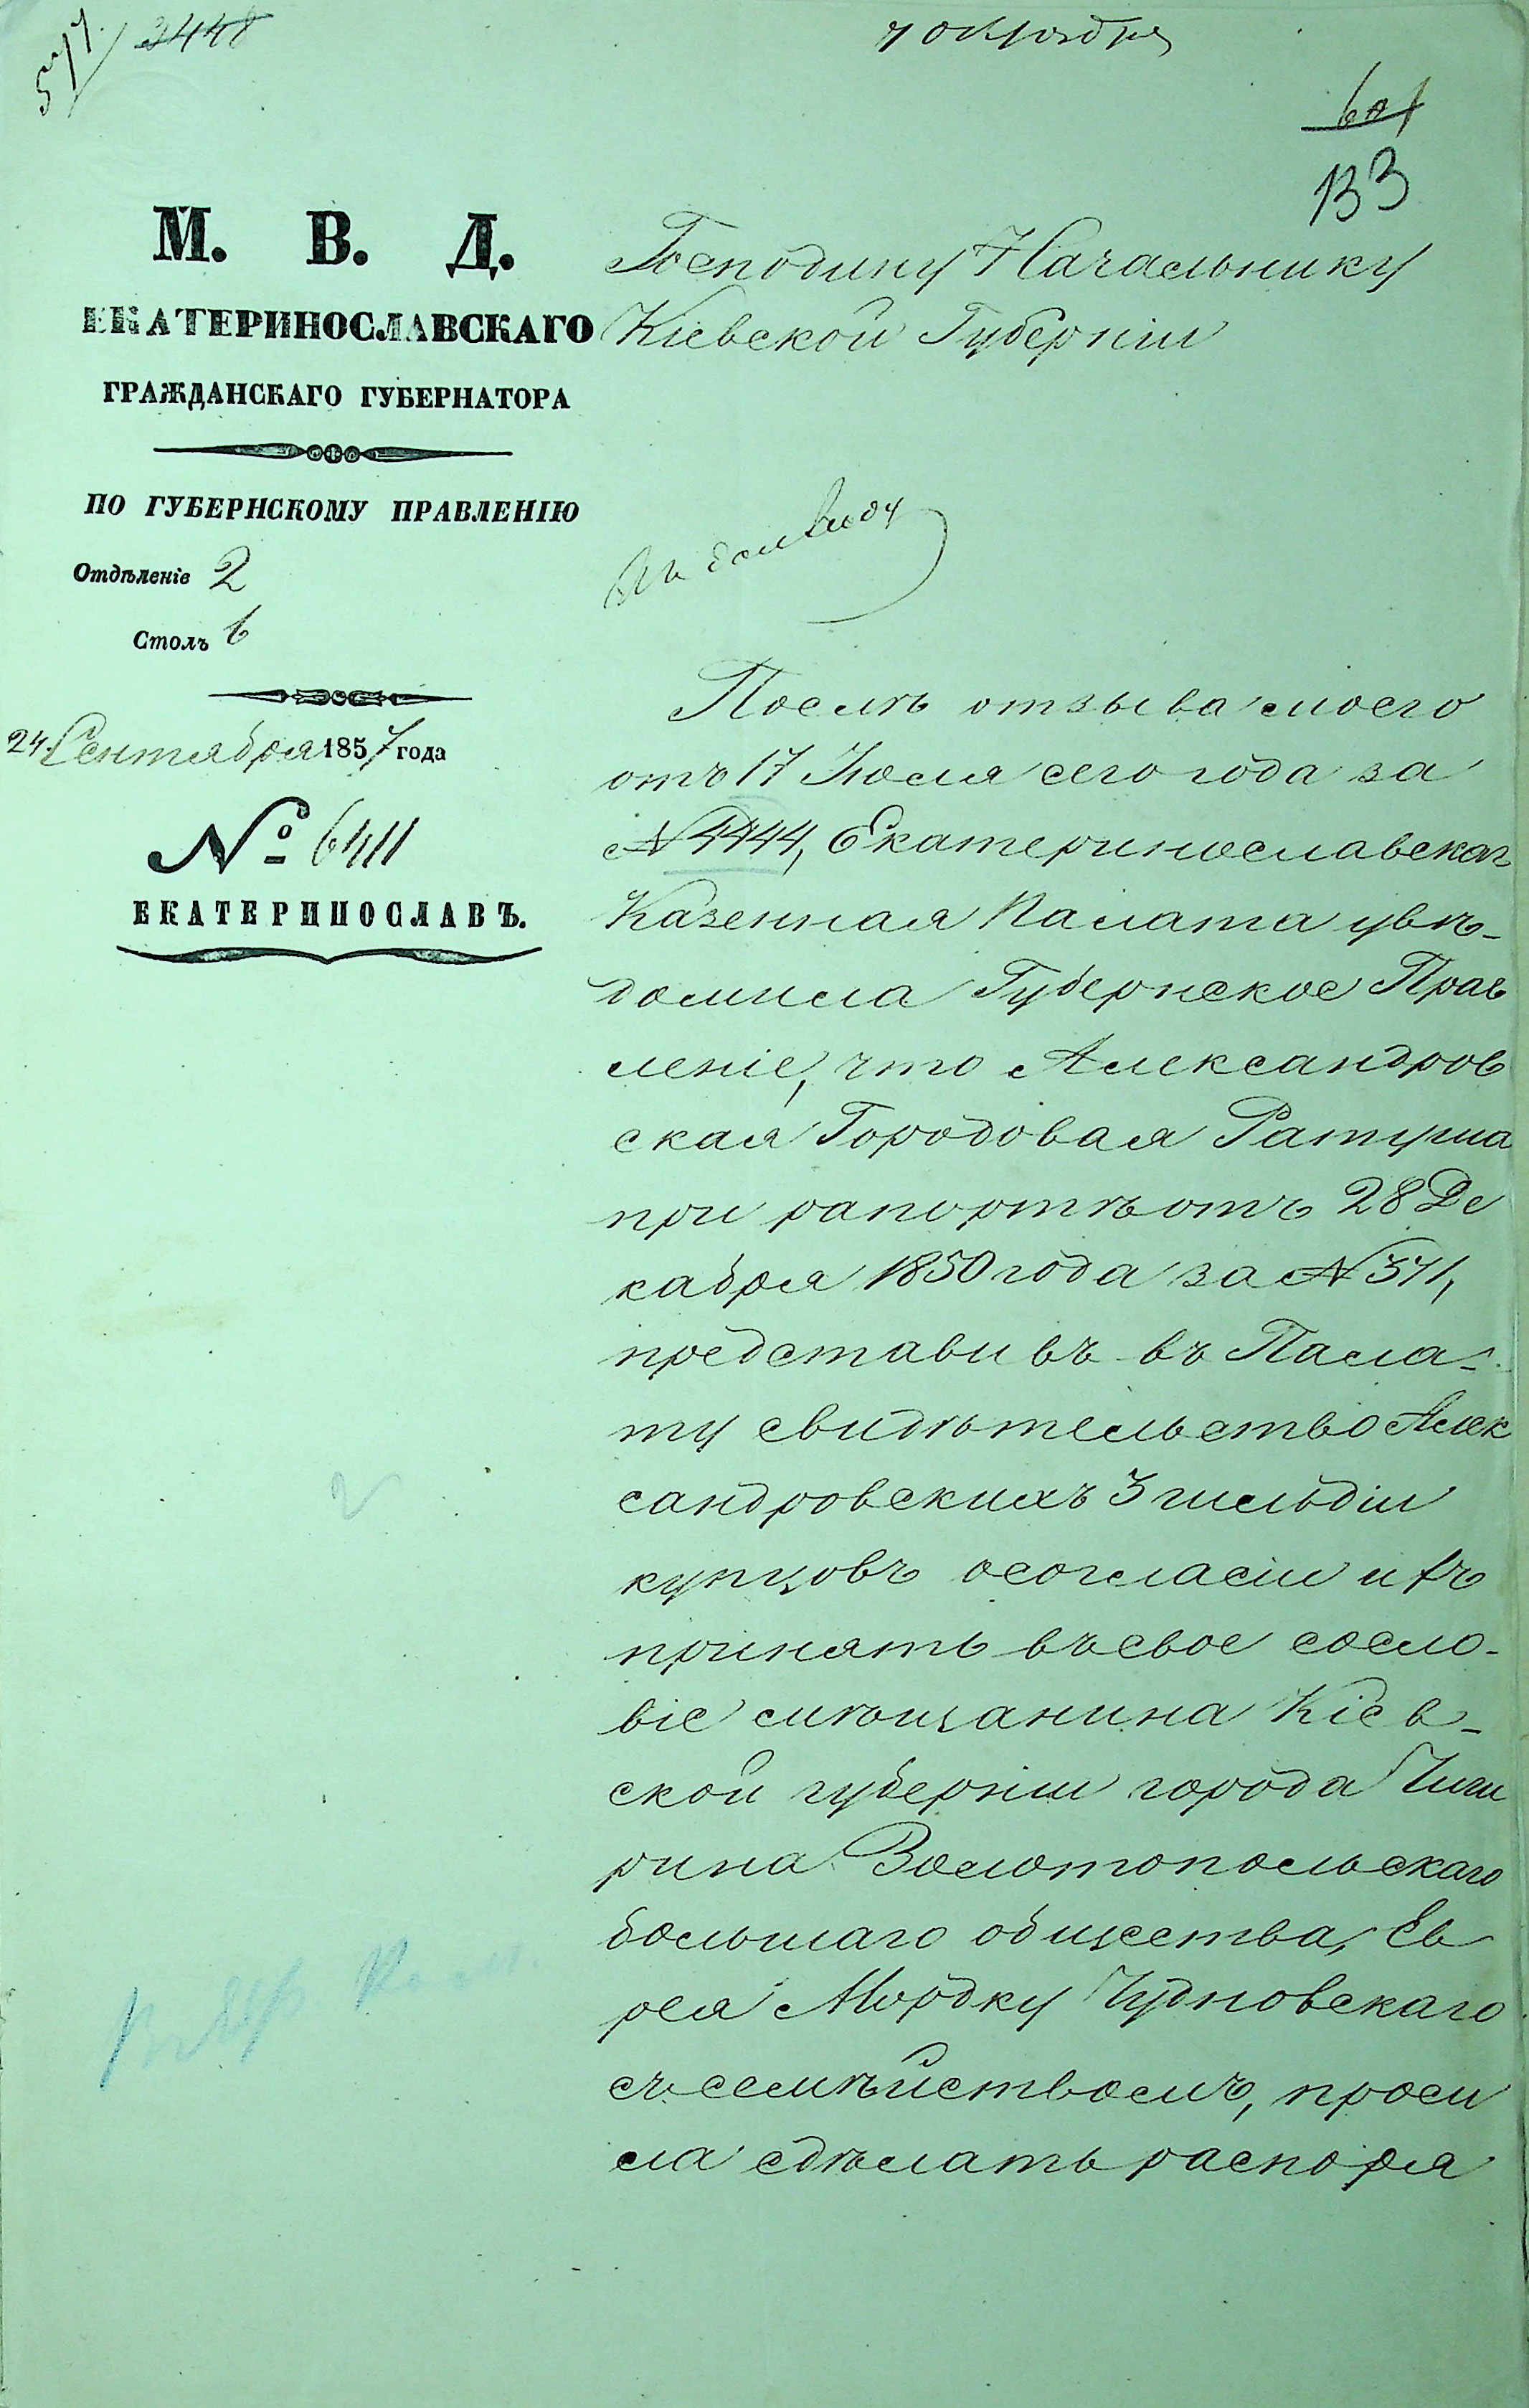 3448
7 Октября
133
М. В. Д.
ЕКАТЕРИНОСЛАВСКАГО
ГРАЖДАНСКАГО ГУБЕРНАТОРА
ПО ГУБЕРНСКОМУ ПРАВЛЕНІЮ
Отдѣленіе 2
Столъ 6
24 Сентября 1857 года
№ 6411
ЕКАТЕРИНОСЛАВЪ.
Господину Начальнику
Кіевской Губерніи
Послѣ отзыва моего
отъ 17 Іюля сего года за
№ 4444, Екатеринославская
Казенная Палата увѣ-
домила Губернское Прав
леніе, что Александров
ская Городовая Ратуша
при рапортѣ отъ 28 Де
кабря 1850 года за № 371,
представивъ въ Пала-
ту свидѣтельство Алек
сандровскихъ 3 гильдіи
купцовъ о согласіи ихъ
принять въ свое сосло-
віе мѣщанина Кіев-
ской губерніи города Чиги
рина Золотопольскаго
большаго общества, Ев
рея Мордку Чудновскаго
съ семѣйствомъ, проси
ла сдѣлать распоря